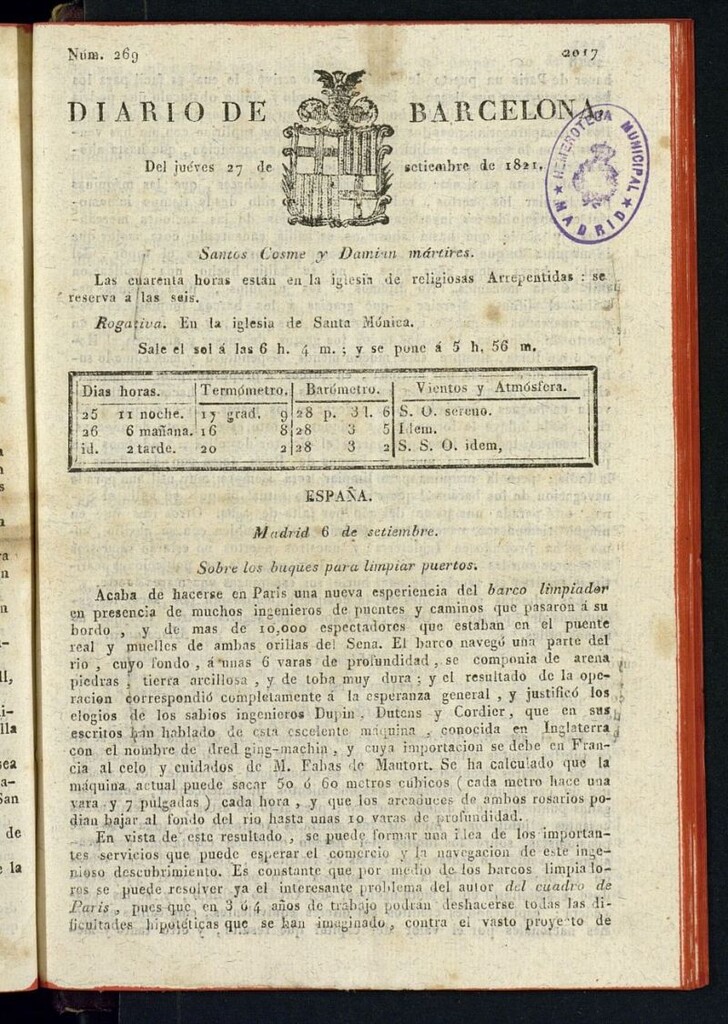 Núm. 269
2017
DIARIO DE BARCELONA
Del juéves 27 de setiembre de 1821.
HEMEROTECA MUNICIPAL
★ MADRID ★
Santos Cosme y Damian mártires.
Las cuarenta horas están en la iglesia de religiosas Arrepentidas : se
reserva á las seis.
Rogativa. En la iglesia de Santa Mónica.
Sale el sol á las 6 h. 4 m. ; y se pone á 5 h. 56 m.
Dias horas. Termómetro. Barómetro. Vientos y Atmósfera.
25 11 noche. 17 grad. 9 28 p. 3 l. 6 S. O. sereno.
26 6 mañana. 16 8 28 3 5 Idem.
id. 2 tarde. 20 2 28 3 2 S. S. O. idem,
ESPAÑA.
Madrid 6 de setiembre.
Sobre los buques para limpiar puertos.
Acaba de hacerse en Paris una nueva esperiencia del barco limpiador
en presencia de muchos ingenieros de puentes y caminos que pasaron á su
bordo , y de mas de 10,000 espectadores que estaban en el puente
real y muelles de ambas orillas del Sena. El barco navegó una parte del
rio , cuyo fondo , á unas 6 varas de profundidad , se componia de arena
piedras , tierra arcillosa , y de toba muy dura ; y el resultado de la ope-
racion correspondió completamente á la esperanza general , y justificó los
elogios de los sabios ingenieros Dupin , Dutens y Cordier, que en sus
escritos han hablado de esta escelente máquina , conocida en Inglaterra
con el nombre de dred ging-machin , y cuya importacion se debe en Fran-
cia al celo y cuidados de M. Fabas de Mautort. Se ha calculado que la
máquina actual puede sacar 50 ó 60 metros cúbicos ( cada metro hace una
vara y 7 pulgadas ) cada hora , y que los arcaduces de ambos rosarios po-
dian bajar al fondo del rio hasta unas 10 varas de profundidad.
En vista de este resultado , se puede formar una idea de los importan-
tes servicios que puede esperar el comercio y la navegacion de este inge-
nioso descubrimiento. Es constante que por medio de los barcos limpiado
ros se puede resolver ya el interesante problema del autor del cuadro de
Paris , pues que en 3 ó 4 años de trabajo podrán deshacerse todas las di-
ficultades hipotéticas que se han imaginado , contra el vasto proyecto de